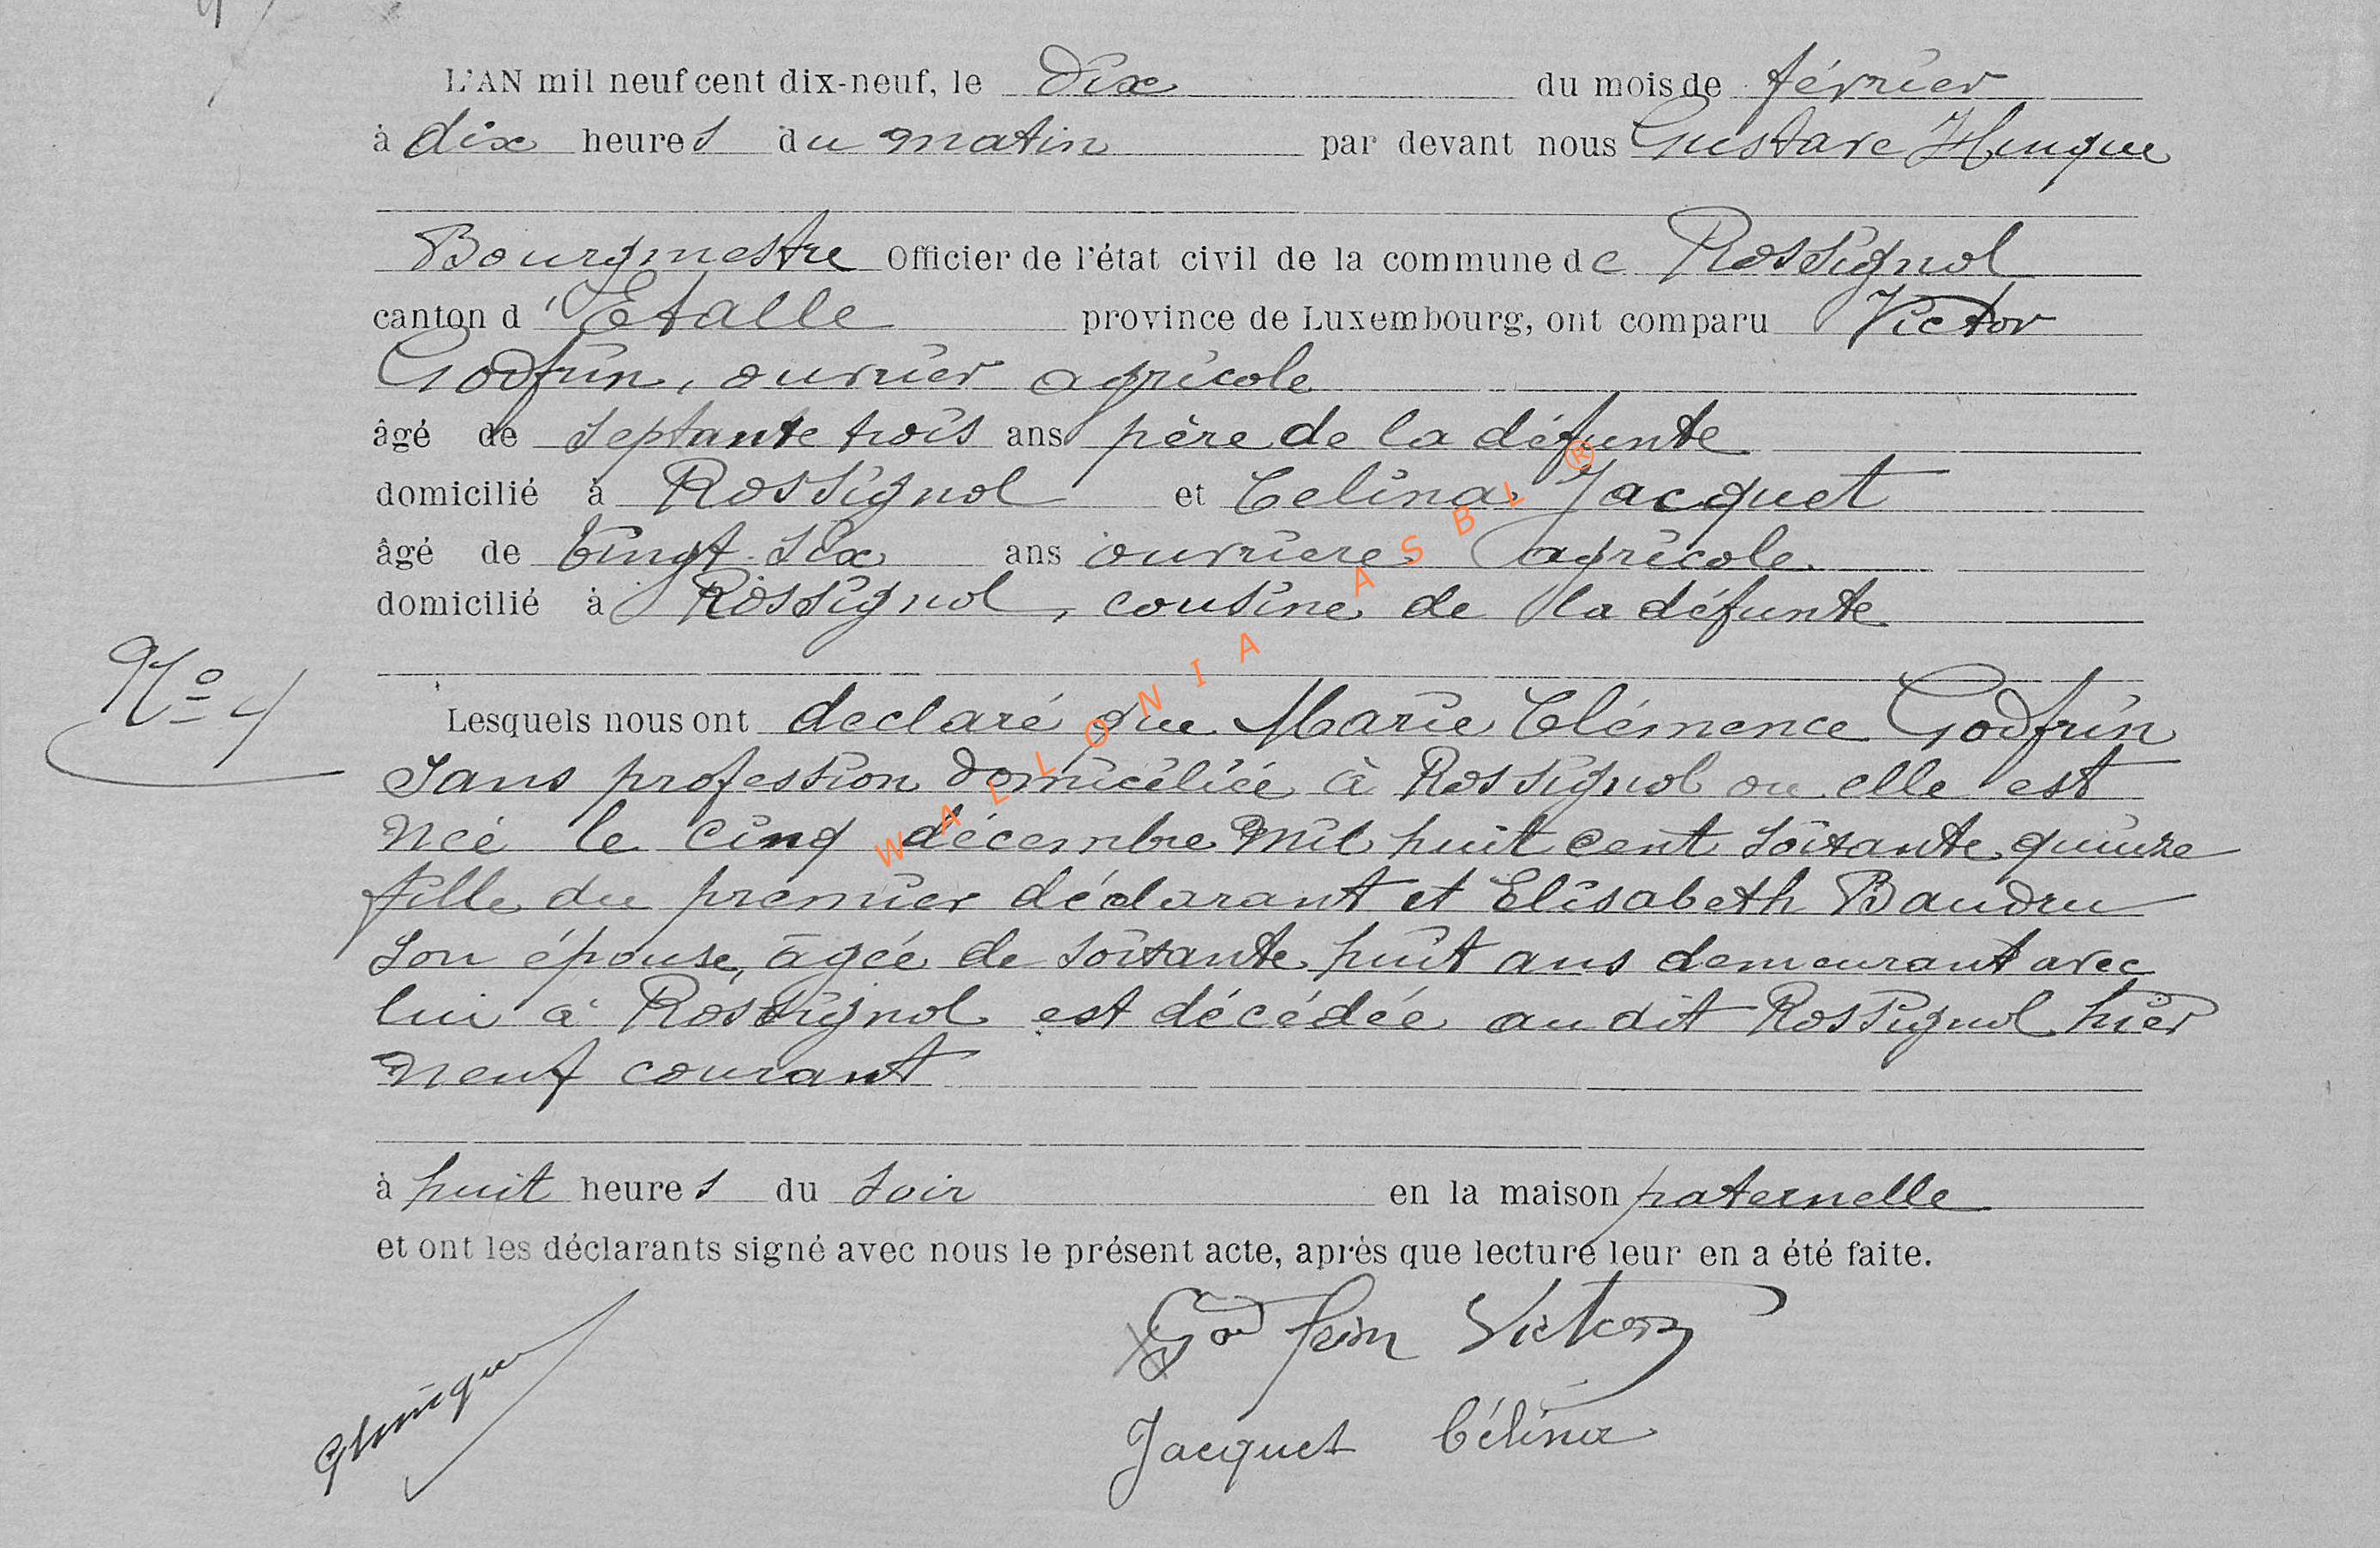 L'AN mil neuf cent dix-neuf, le Dix du mois de février
à dix heures du matin par devant nous Gustave Hinque
Bourgmestre Officier de l'état civil de la commune de Rossignol
canton d'Etalle province de Luxembourg, ont comparu Victor
Godfrin, ouvrier agricole
âgé de septante trois ans père de la défunte
domicilié à Rossignol et Celina Jacquet
âgé de Vingt-six ans ouvriere agricole
domicilié à Rossignol, cousine de la défunte
No 4
Lesquels nous ont declaré que Marie Clémence Godfrin
sans profession domiciliée à Rossignol ou elle est
née le cinq décembre mil huit cent soixante quinze
fille du premier déclarant et Elisabeth Baudru
son épouse, agée de soixante huit ans demeurant avec
lui à Rossignol est décédée au dit Rossignol hier
neuf courant
à huit heures du soir en la maison paternelle
et ont les déclarants signé avec nous le présent acte, après que lecture leur en a été faite.
Godfrin Victor
Jacquet Célina
WALLONIA ASBL ®